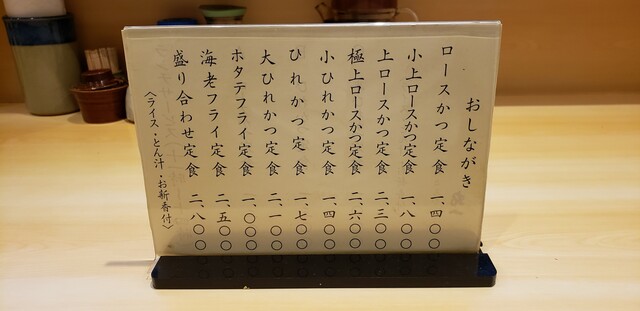 おしながき
ロースかつ定食 一、四〇〇
小上ロースかつ定食 一、八〇〇
上ロースかつ定食 二、三〇〇
極上ロースかつ定食 二、六〇〇
小ひれかつ定食 一、四〇〇
ひれかつ定食 一、七〇〇
大ひれかつ定食 二、一〇〇
ホタテフライ定食 一、〇〇〇
海老フライ定食 二、五〇〇
盛り合わせ定食 二、八〇〇
〈ライス・とん汁・お新香付〉